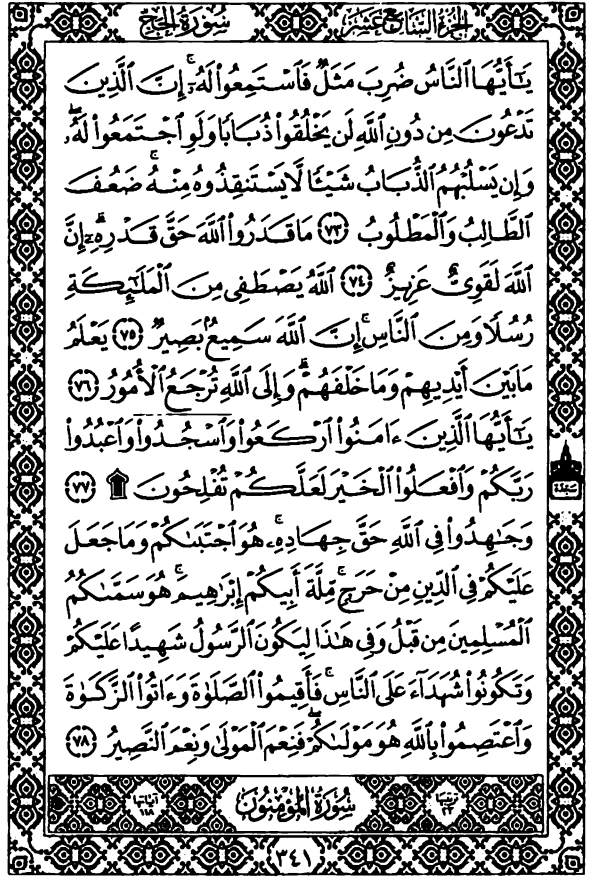 سُورَةُ الحَجّ
الجُزءُ السَّابِعَ عَشَرَ
يَٰٓأَيُّهَا ٱلنَّاسُ ضُرِبَ مَثَلٌ فَٱسْتَمِعُوا۟ لَهُۥٓ ۚ إِنَّ ٱلَّذِينَ
تَدْعُونَ مِن دُونِ ٱللَّهِ لَن يَخْلُقُوا۟ ذُبَابًا وَلَوِ ٱجْتَمَعُوا۟ لَهُۥ ۖ
وَإِن يَسْلُبْهُمُ ٱلذُّبَابُ شَيْـًٔا لَّا يَسْتَنقِذُوهُ مِنْهُ ۚ ضَعُفَ
ٱلطَّالِبُ وَٱلْمَطْلُوبُ ﴿٧٣﴾ مَا قَدَرُوا۟ ٱللَّهَ حَقَّ قَدْرِهِۦٓ ۗ إِنَّ
ٱللَّهَ لَقَوِىٌّ عَزِيزٌ ﴿٧٤﴾ ٱللَّهُ يَصْطَفِى مِنَ ٱلْمَلَٰٓئِكَةِ
رُسُلًا وَمِنَ ٱلنَّاسِ ۚ إِنَّ ٱللَّهَ سَمِيعٌۢ بَصِيرٌ ﴿٧٥﴾ يَعْلَمُ
مَا بَيْنَ أَيْدِيهِمْ وَمَا خَلْفَهُمْ ۗ وَإِلَى ٱللَّهِ تُرْجَعُ ٱلْأُمُورُ ﴿٧٦﴾
يَٰٓأَيُّهَا ٱلَّذِينَ ءَامَنُوا۟ ٱرْكَعُوا۟ وَٱسْجُدُوا۟ وَٱعْبُدُوا۟
رَبَّكُمْ وَٱفْعَلُوا۟ ٱلْخَيْرَ لَعَلَّكُمْ تُفْلِحُونَ ۩ ﴿٧٧﴾
سجدة
وَجَٰهِدُوا۟ فِى ٱللَّهِ حَقَّ جِهَادِهِۦ ۚ هُوَ ٱجْتَبَىٰكُمْ وَمَا جَعَلَ
عَلَيْكُمْ فِى ٱلدِّينِ مِنْ حَرَجٍ ۚ مِّلَّةَ أَبِيكُمْ إِبْرَٰهِيمَ ۚ هُوَ سَمَّىٰكُمُ
ٱلْمُسْلِمِينَ مِن قَبْلُ وَفِى هَٰذَا لِيَكُونَ ٱلرَّسُولُ شَهِيدًا عَلَيْكُمْ
وَتَكُونُوا۟ شُهَدَآءَ عَلَى ٱلنَّاسِ ۚ فَأَقِيمُوا۟ ٱلصَّلَوٰةَ وَءَاتُوا۟ ٱلزَّكَوٰةَ
وَٱعْتَصِمُوا۟ بِٱللَّهِ هُوَ مَوْلَىٰكُمْ ۖ فَنِعْمَ ٱلْمَوْلَىٰ وَنِعْمَ ٱلنَّصِيرُ ﴿٧٨﴾
ترتيبها ٢٣
سُورَةُ المُؤْمِنُون
آياتها ١١٨
٣٤١